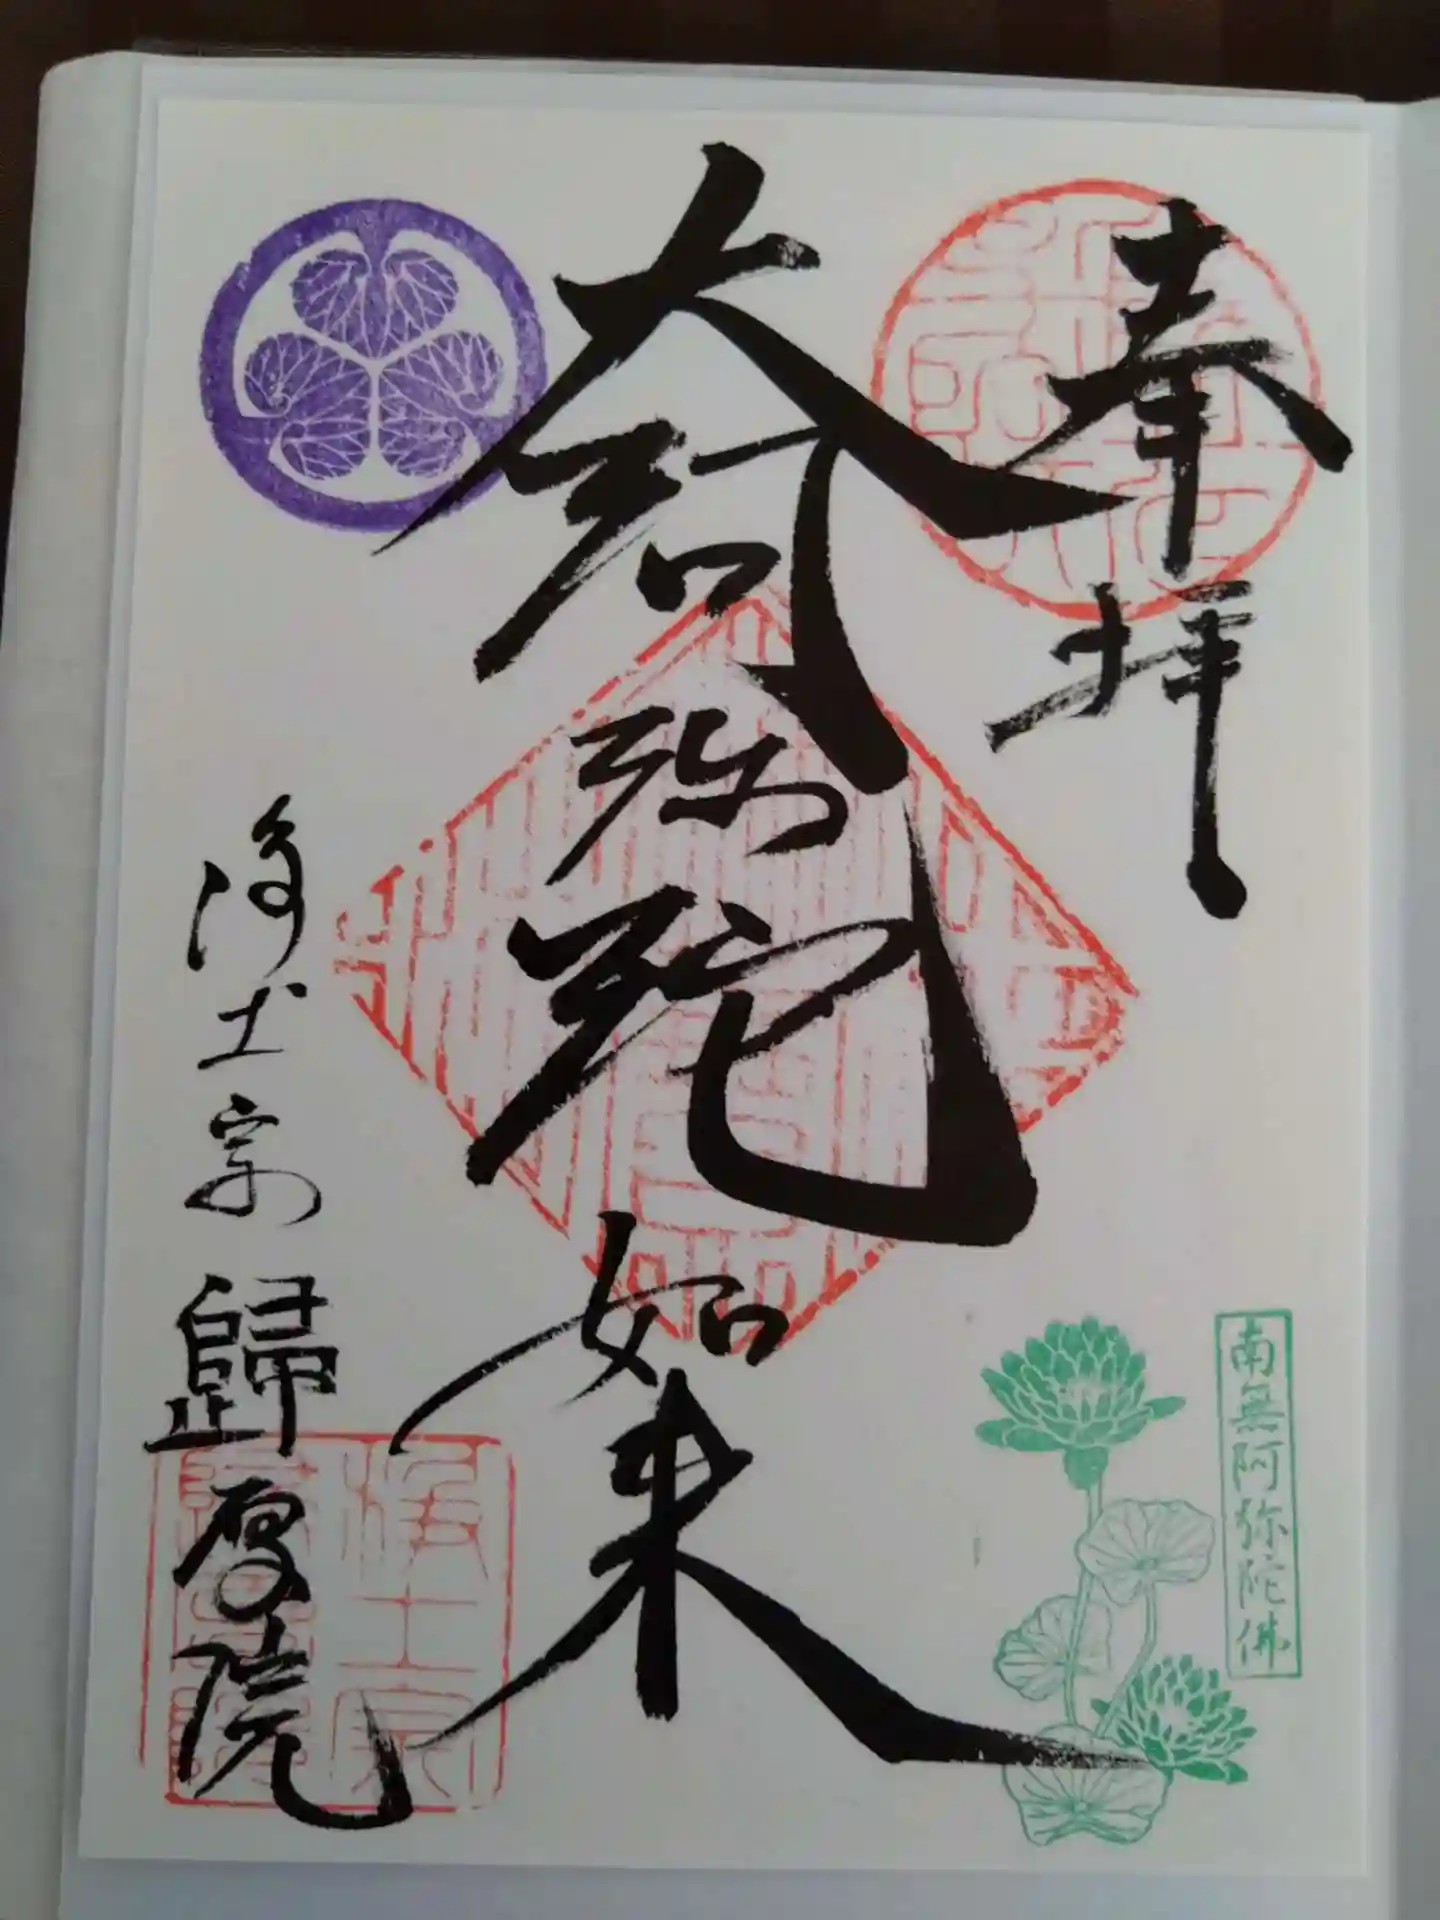 奉拝
大阿弥陀如来
浄土宗 歸厚院
南無阿弥陀佛